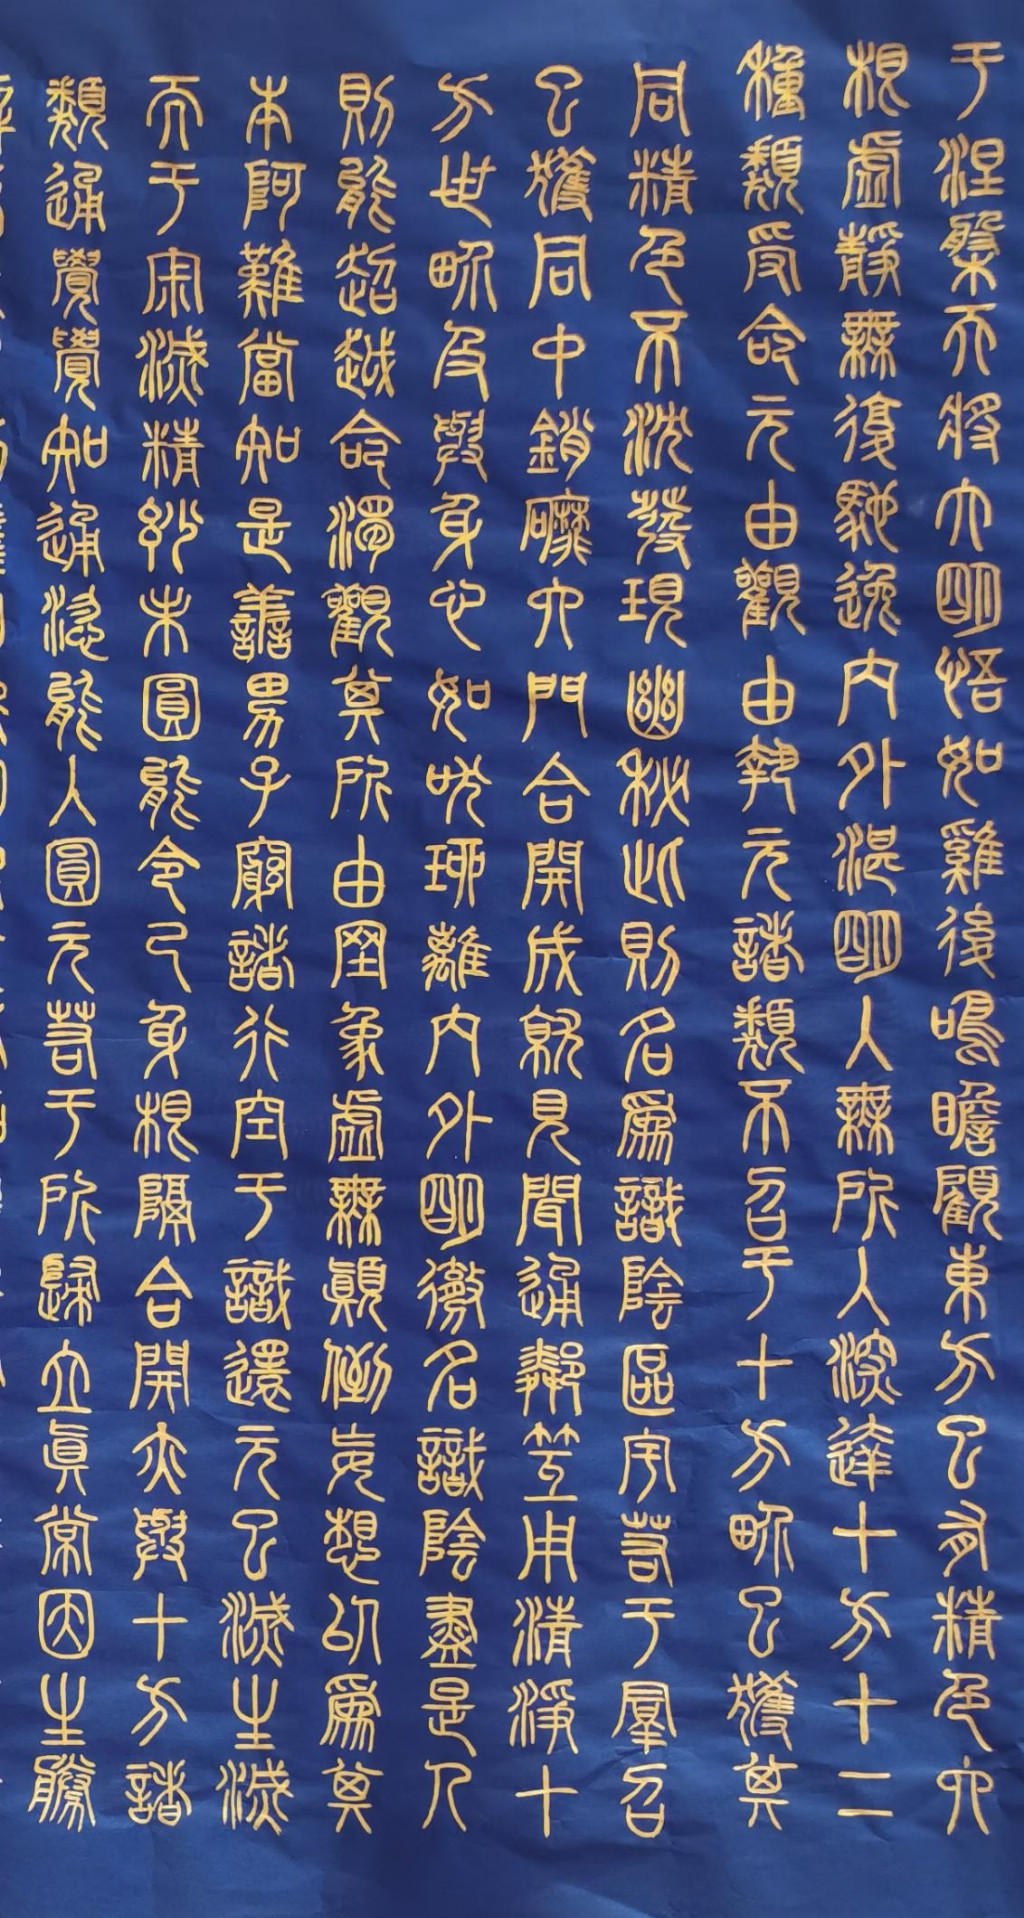 于涅槃天將大明悟如雞後鳴瞻顧東方已有精色六
根虛靜無復馳逸內外湛明入無所入深達十方十二
種類受命元由觀由執元諸類不召于十方界已獲其
同精色不沈發現幽秘此則名為識陰區宇若于群召
已獲同中銷磨六門合開成就見聞通鄰互用清淨十
方世界及與身心如吠琉離內外明徹名識陰盡是人
則能超越命濁觀其所由罔象虛無顛倒妄想以為其
本阿難當知是善男子窮諸行空于識還元已滅生滅
而于寂滅精妙未圓能令己身根隔合開亦與十方諸
類通覺覺知通㳷能入圓元若于所歸立真常因生勝